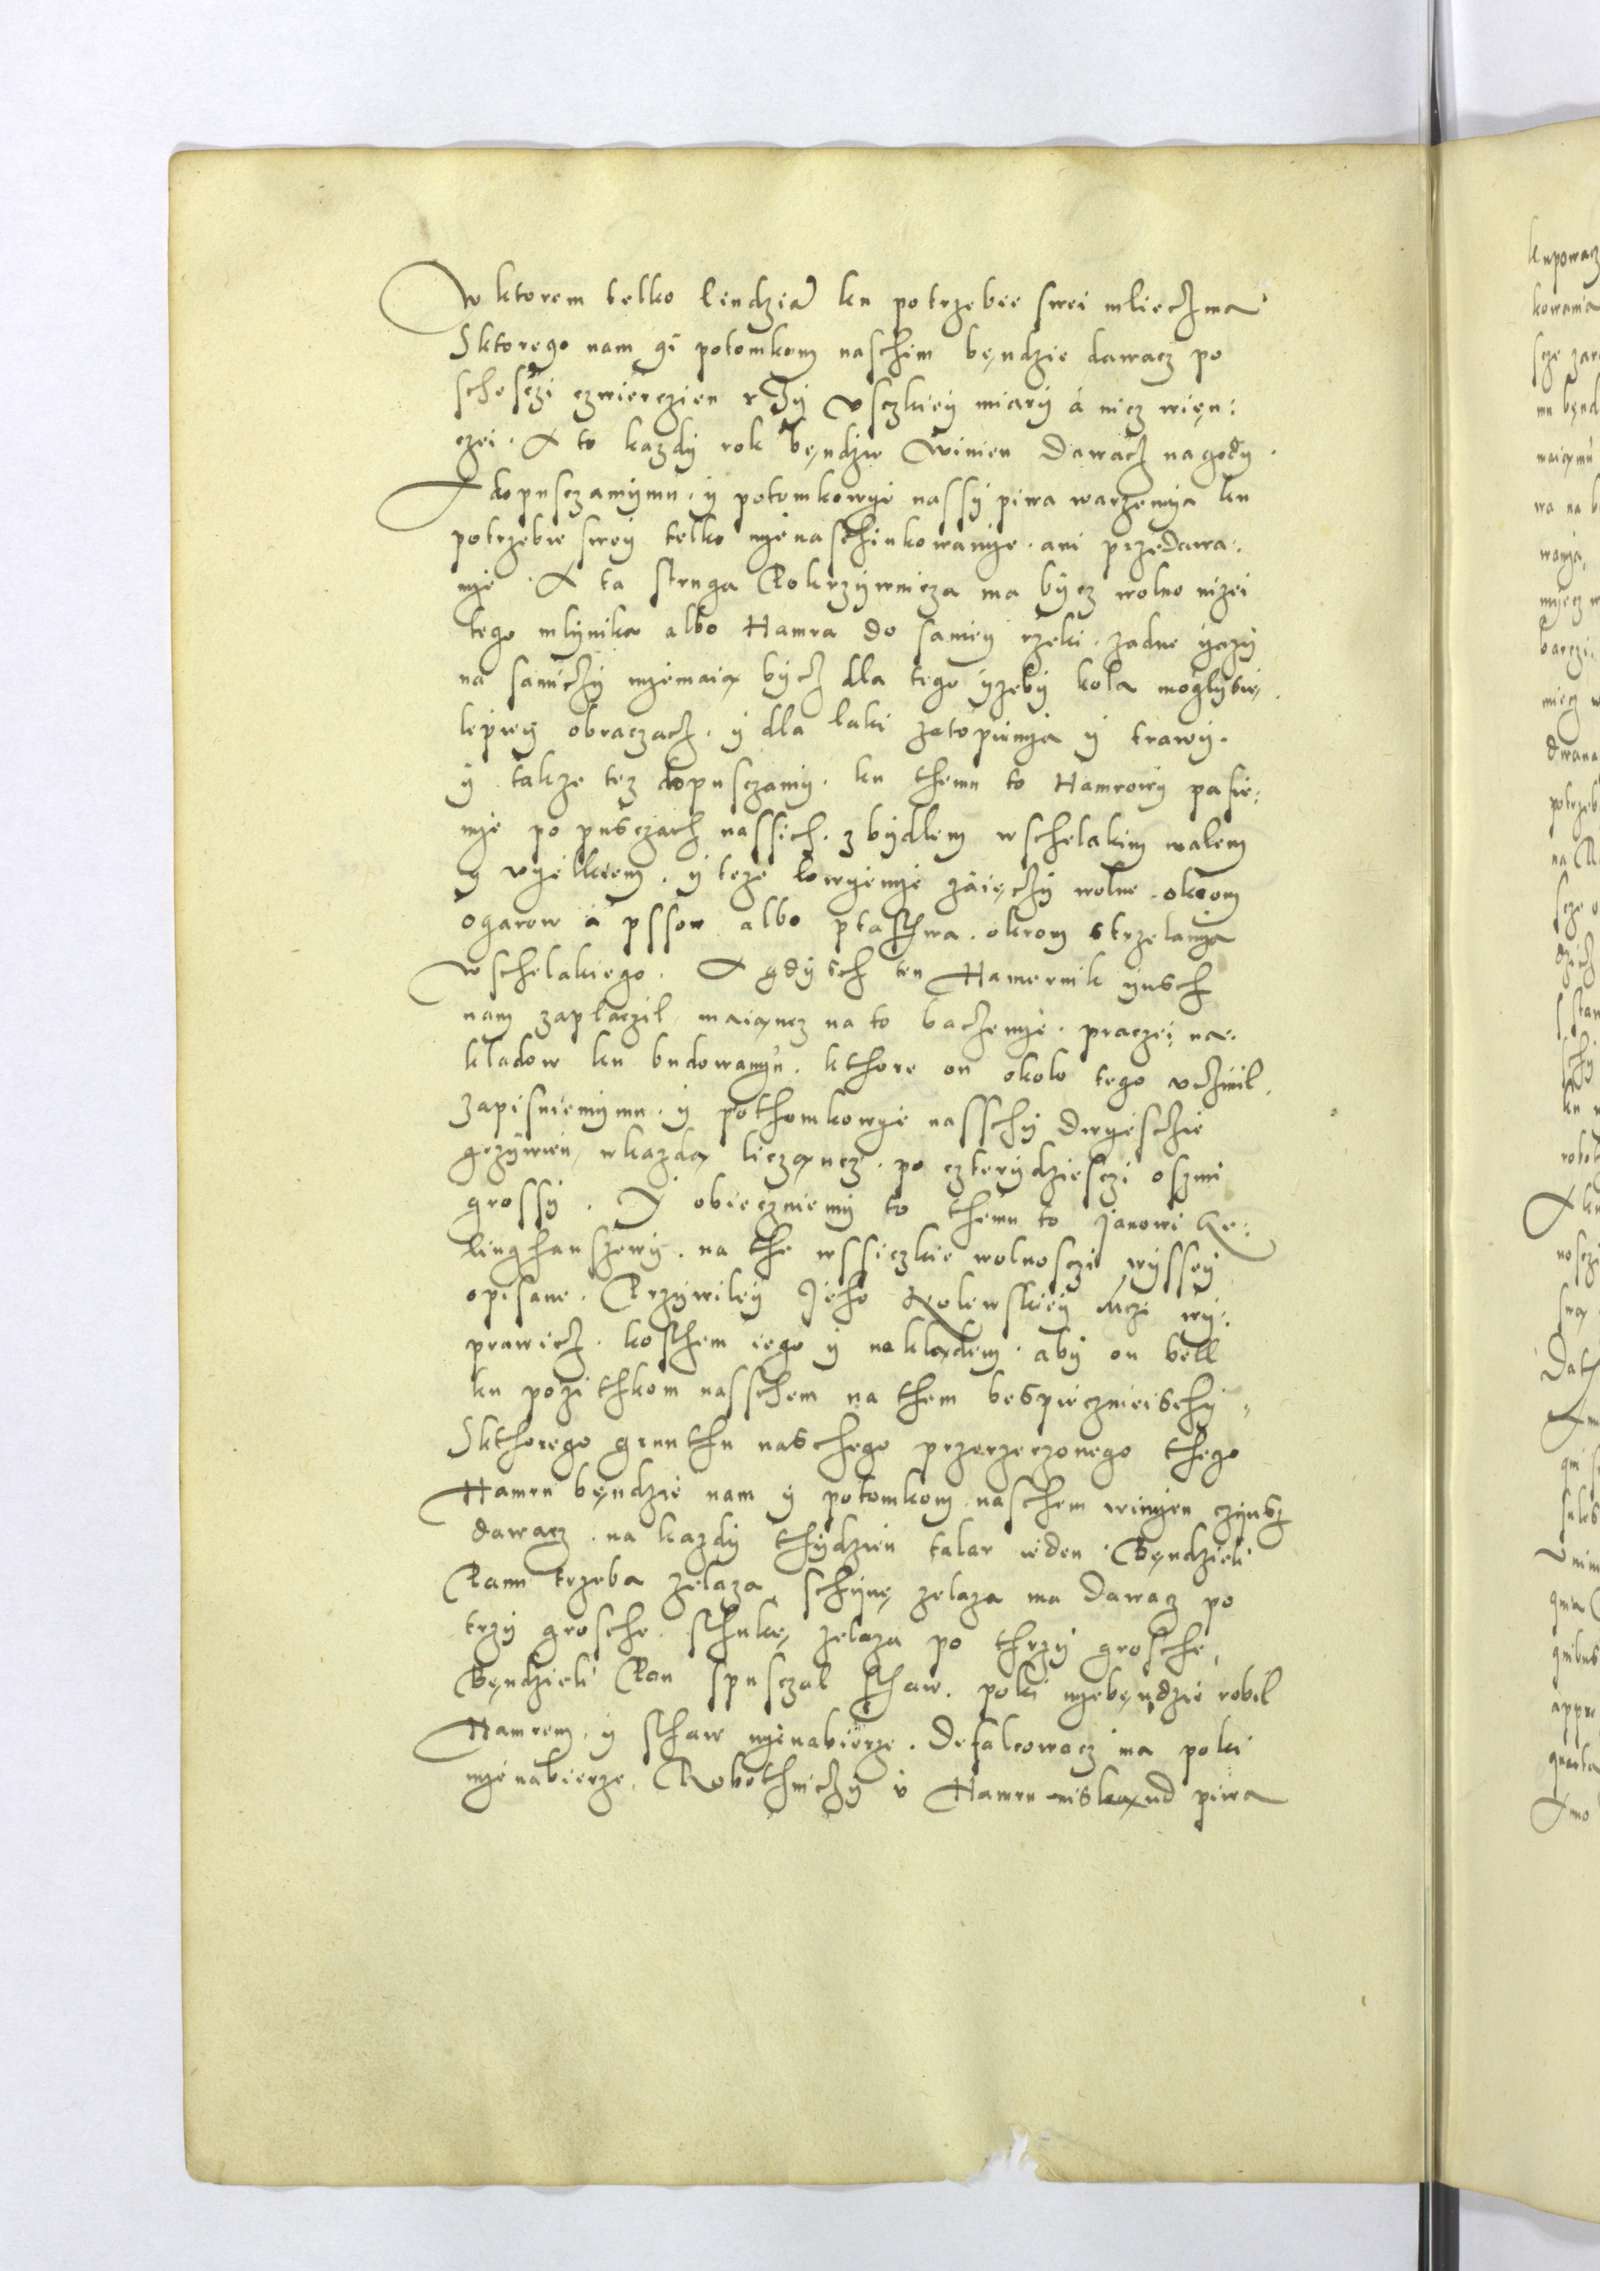 W ktorem telko lindziad ku potrzebie swei mliecz ma
Sktorego nam gi potomkom naschim bęndzie dawacz po
schesczi czwierczien rżÿ v sczkieÿ miarÿ á nicz więn:
czei. A to kazdÿ rok bęndzie winien dawacz na godÿ.
A dopusczamÿmu. ÿ potomkowÿe nassÿ piwa warzenÿa ku
potrzebie sweÿ telko nÿe naschinkowanÿe. ani przedawa:
nÿe. A ta struga Pokrzÿwnicza ma bÿcz wolno nizei
tego mlÿnika albo Hamra do samieÿ rzeki. zadne ÿazÿ
na samiczÿ nÿemaią bÿcz dla tego ÿzebÿ kola moglÿ się
lepieÿ obraczacz. ÿ dla laki zatopienÿa ÿ trawÿ.
ÿ takze tez dopusczamÿ. ku themu to Hamrowÿ pasie:
nÿe po pusczach nassich. z bÿdlem wschelakim malem
ÿ vÿelkiem. ÿ teze lowÿenÿe zaięczÿ wolne. okrom
ogarow á pssow albo ptastwa. okrom strzelanÿa
wschelakiego. A gdÿsch ten Hamernik ÿusch
nam zaplaczil maiąncz na to baczenÿe. praczei na:
kladow ku budowanÿu. kthore on okolo tego vczinil.
zapisuiemÿmu. ÿ pothomkowÿe nasschÿ dwÿeschie
grzÿwien, w kazdą licząncz. po czterÿdziesczi oszmi
grossÿ. Y obieczuiemÿ to themu to Janowi Ke:
linghanszewÿ. na the wssiczkie wolnosczi wÿsseÿ
opisane. Przÿwileÿ Jeho Krolewskieÿ Mczi wÿ:
prawicz. kosthem iego ÿ nakladem. abÿ on bell
ku pozithkom nasschem na them bespieczneischÿ.
Skthorego grunthu naschego przerzeczonego thego
Hamru bęndzie nam ÿ potomkom naschem winÿen czÿnsz
dawacz. na kazdÿ thÿdzien talar ieden. Bęndzieli
Panu trzeba zelaza, schÿnę zelaza ma dawacz po
trzÿ grosche. sthukę zelaza po thrzÿ grosche,
Bęndzieli Pan spusczal sthaw. poki nÿebęndzie robil
Hamrem. ÿ sthaw nÿenabierze. Defalcowacz ma poki
nÿenabierze. Robothniczÿ v Hamru niskąnd piwa